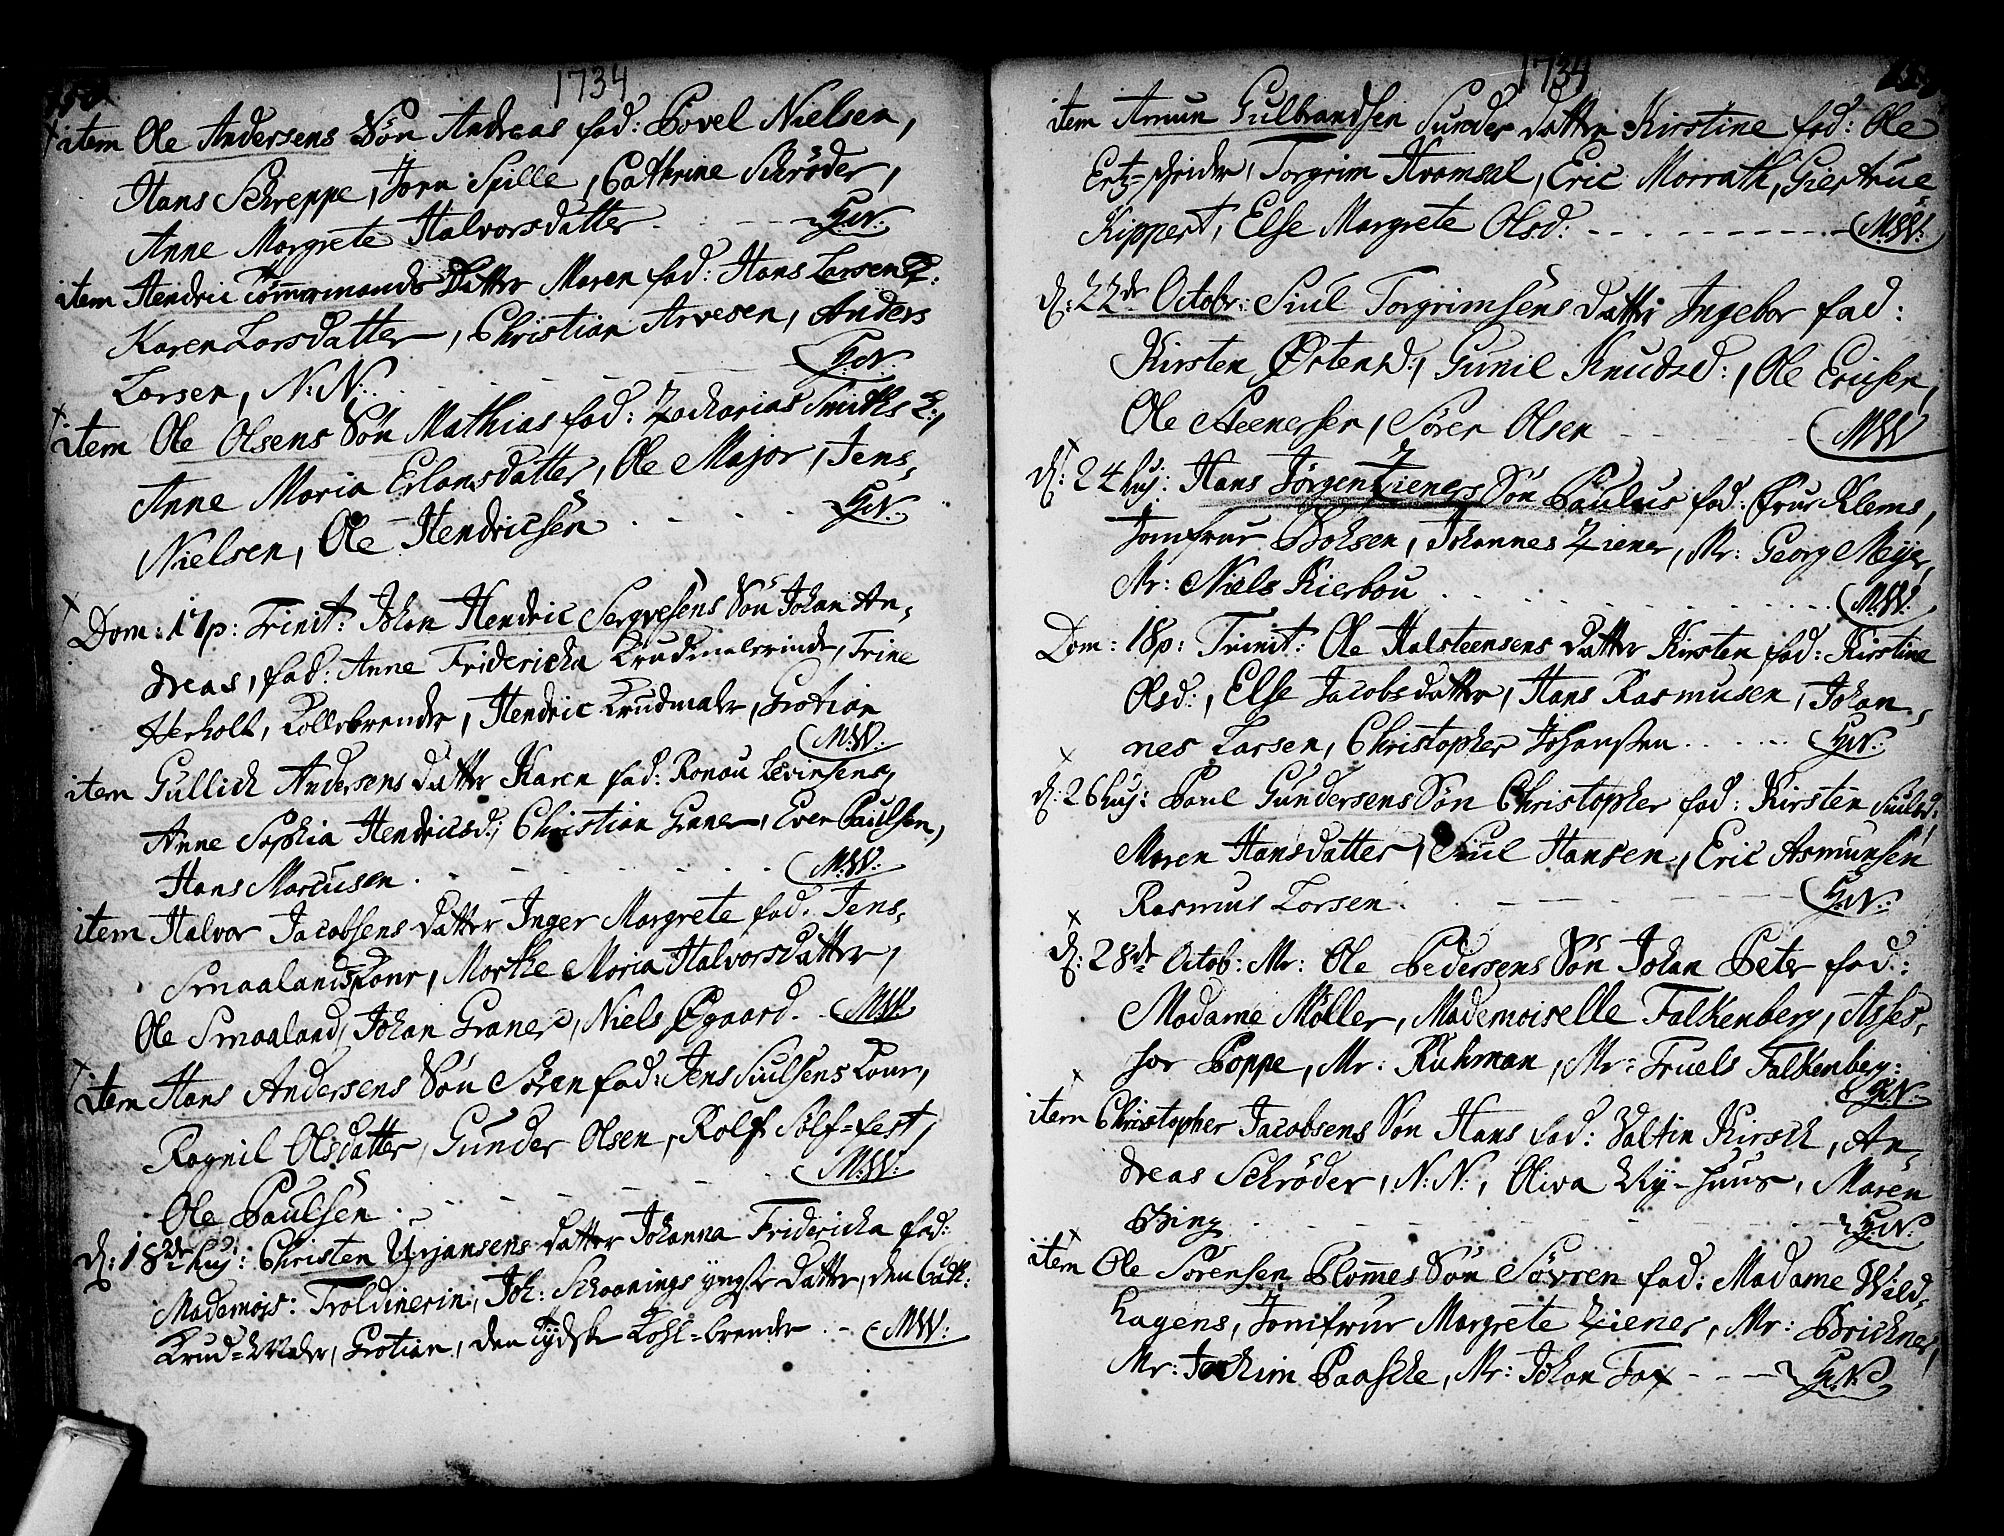 1734
item Ole Andersens Søn Andreas fad: Povel Nielsen,
Hans Schreppe, Jørn Spille, Cathrine Schrøder,
Anne Margrete Halvorsdatter. H:N:
item Hendric Tømmermands Datter Maren fad: Hans Larsens K:
Karen Larsdatter, Christian Arvesen, Anders
Larsen, N:N: H:N:
item Ole Olsens Søn Mathias fad: Zacharias Smiths K:,
Anne Maria Erlansdatter, Ole Major, Jens
Nielsen, Ole Hendrichsen H:N:
Dom: 17 p: Trinit: Johan Hendric Sergvesens Søn Johan An-
dreas, fad: Anne Fridericha Krudmalerinde, Trine
Herholt, Kollebrender, Hendric Krudmaler, Grotian
M:W:
item Gullich Andersens datter Karen fad: Ronau Levinsens,
Anne Sophia Hendricsd:, Christian Graner, Even Paulsen,
Hans Marcusen. M:W:
item Halvor Jacobsens datter Inger Margrete fad: Jens
Smaalands Kone, Marthe Maria Halvorsdatter,
Ole Smaaland, Johan Graner, Niels Øgaard. M:W
item Hans Andersens Søn Søren fad: Jens Siulsens Kone,
Ragnil Olsdatter, Gunder Olsen, Rolf Sølf-fest,
Ole Paulsen. M:W:
d: 18de huj: Christen Urjansens datter Johanna Fridericha fad:
Mademois: Troldinerin, Joh: Schoonings yngste datter, den
Krud-Maler, Grotian, den Tydske Kohl-brender M:W:
1734
item Amun Gulbrandsen Sunder datter Kirstine fad: Ole
Ertz-schrider, Torgrim Kvamsel, Eric Morrath, Giertrue
Kippert, Else Margrete Olsd: M:W:
d: 22de Octobr: Siul Torgrimsens datter Ingebor fad:
Kirsten Østensd:, Gunil Knudsd:, Ole Ericsen,
Ole Steenersen, Sören Olsen M:W
d: 24 huj: Hans Jørgen Zieners Søn Paulus fad: Frue Klems,
Jomfrue Bohsen, Johannes Ziener, Mr: Georg Meyer,
Mr: Niels Kierbou M:W:
Dom: 18 p: Trinit: Ole Halsteensens datter Kirsten fad: Kirstine
Olsd:, Else Jacobsdatter, Hans Rasmusen, Johan-
nes Larsen, Christopher Johansen H:N:
d: 26 huj: Paul Gundersens Søn Christopher fad: Kirsten Siulsd:
Maren Hansdatter, Siul Hansen, Eric Asmunsen
Rasmus Larsen. H:N:
d: 28de Octob: Mr: Ole Pedersens Søn Johan Peter fad:
Madame Møller, Mademoiselle Falkenberg, Asses-
sor Poppe, Mr: Ruhman, Mr: Truels Falkenberg:
H:N:
item Christopher Jacobsens Søn Hans fad: Valtin Kirsch, An-
dreas Schrøder, N:N:, Oliva Ny-huus, Maren
Bing H:N:
item Ole Sørensen Blommes Søn Søvren fad: Madame Wild-
hagens, Jomfrue Margrete Ziener, Mr: Brichner,
Mr: Jochim Paasche, Mr: Johan Fax H:N: